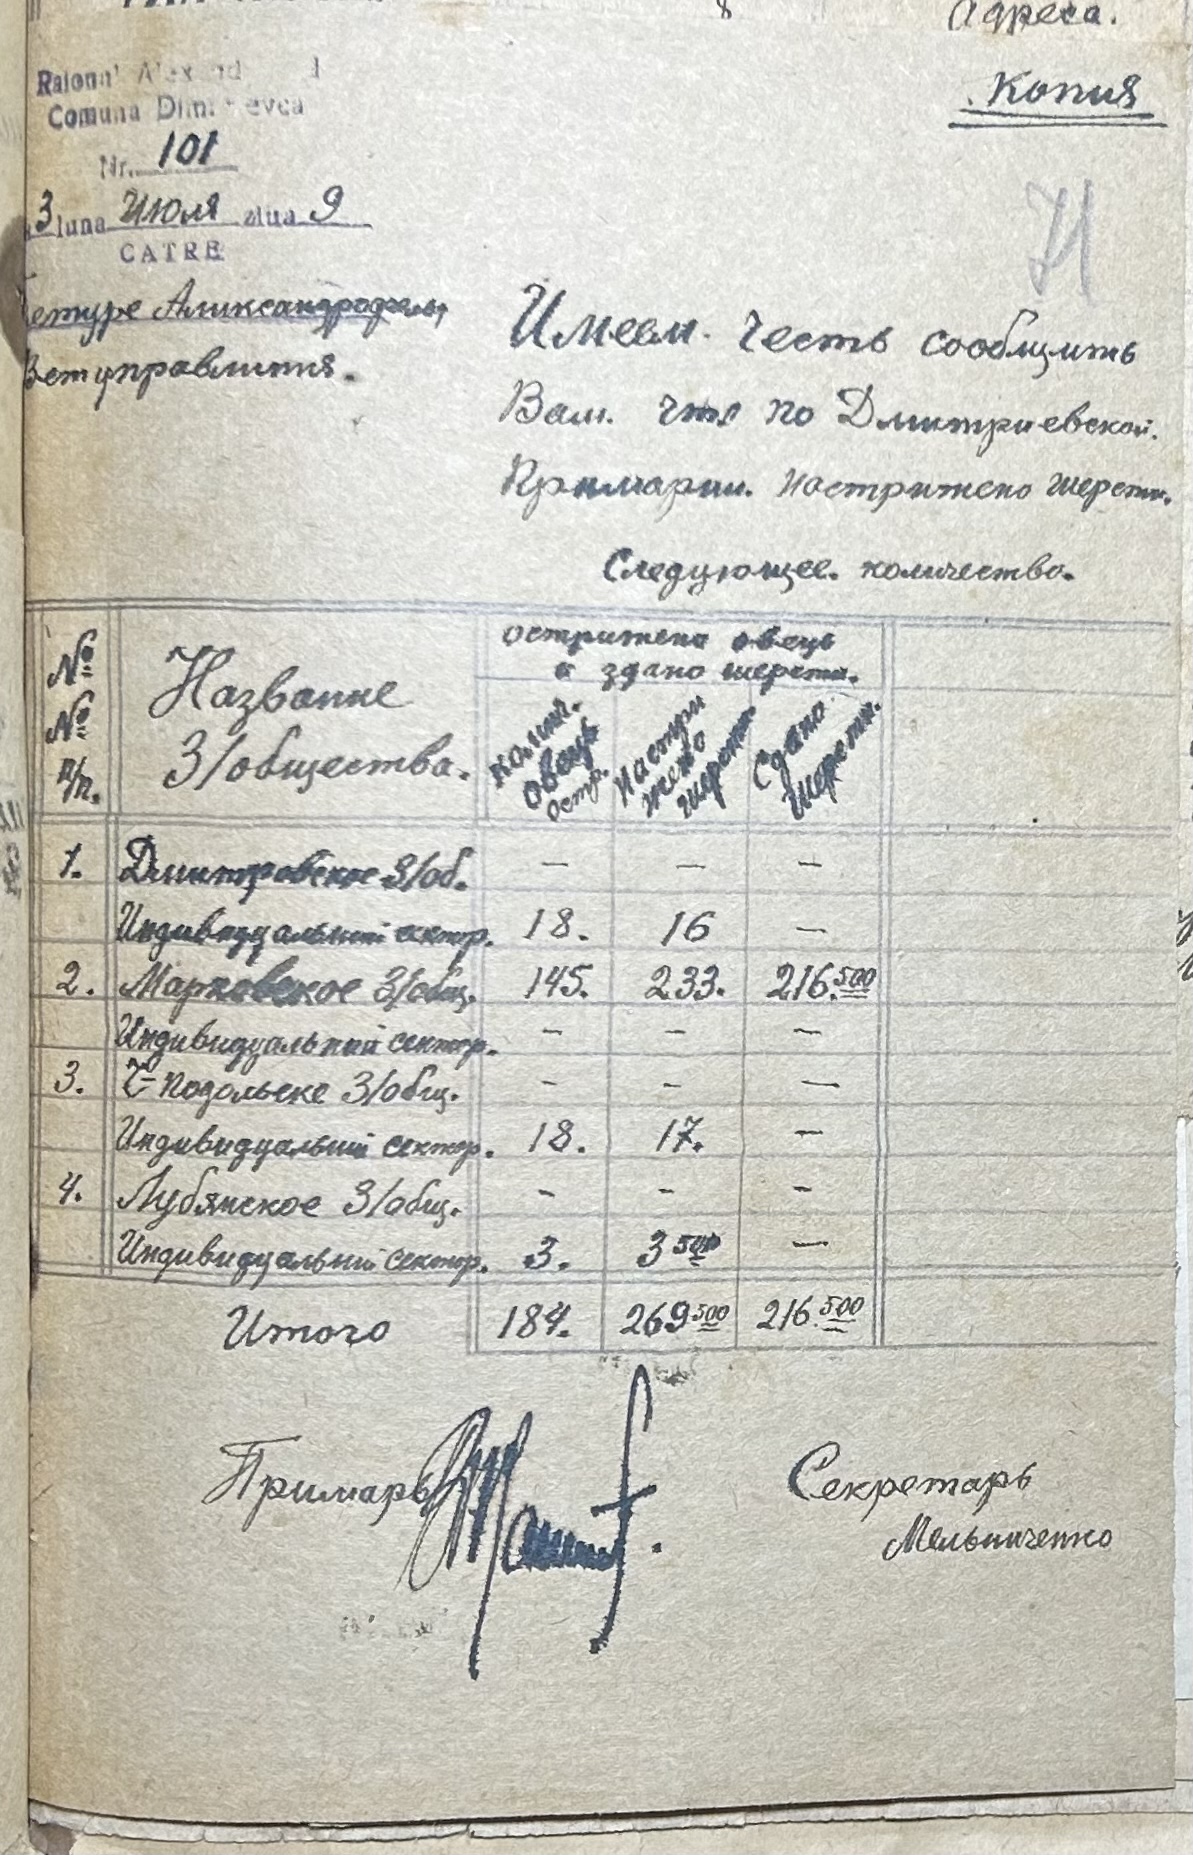 Адреса.
Копия
Raionul
Comuna
Nr. 101
3 luna Июля ziua 9
CATRE
Ветуправлития.
Имеем. Честь сообщить
Вам. что по Дмитриевской.
Примарии. Настрижено шерсти.
Следующее. количество.
№ № п/п. Название З/общества. острижена овець и здано шерсти.
Колич. овець остр. Настри жено шерсти. Сдано шерсти.
1. Дмитровское З/об. – – –
Индивидуальний сектор. 18. 16 –
2. Марковское З/общ. 145. 233. 216.500
Индивидуальний сектор. – – –
3. Т-Подольске З/общ. – – –
Индивидуальний сектор. 18. 17. –
4. Лубянское З/общ. – – –
Индивидуальний сектор. 3. 3 500 –
Итого 184. 269 500 216.500
Примарь Секретарь
Мельниченко